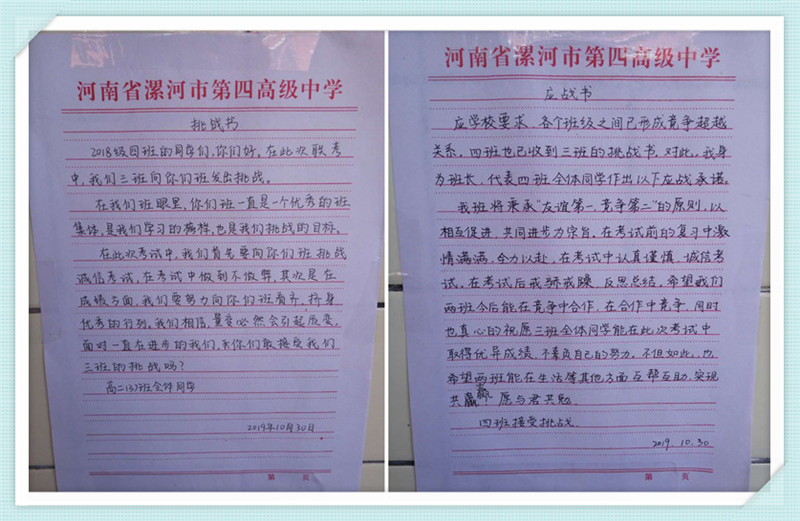 河南省漯河市第四高级中学
挑战书
2018级四班的同学们,你们好。在此次联考
中,我们三班向你们班发出挑战。
在我们班眼里,你们班一直是一个优秀的班
集体,是我们学习的榜样,也是我们挑战的目标。
在此次考试中,我们首先要向你们班挑战
诚信考试,在考试中做到不做弊,其次是在
成绩方面,我们要努力向你们班看齐,挤身
优秀的行列。我们相信,量变必然会引起质变,
面对一直在进步的我们,你们敢接受我们
三班的挑战吗?
高二(3)班全体同学
2019年10月30日
第 页
河南省漯河市第四高级中学
应战书
应学校要求,各个班级之间已形成竞争超越
关系,四班也已收到三班的挑战书,对此,我身
为班长,代表四班全体同学作出以下应战承诺。
我班将秉承“友谊第一,竞争第二”的原则,以
相互促进,共同进步为宗旨,在考试前的复习中激
情满满,全力以赴,在考试中认真谨慎,诚信考
试,在考试后戒骄戒躁,反思总结,希望我们
两班今后能在竞争中合作,在合作中竞争,同时
也真心的祝愿三班全体同学能在此次考试中
取得优异成绩,不辜负自己的努力。不但如此,也
希望两班能在生活等其他方面互帮互助,实现
共赢,愿与君共勉。
四班接受挑战。
2019.10.30
第 页